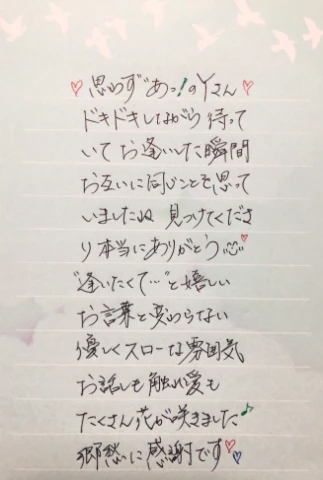 ♡思わず"あっ！のYさん♡
ドキドキしながら待って
いてお逢いした瞬間
お互いに同じことを思って
いましたね 見つけてくださ
り本当にありがとう♡
"逢いたくて…"と嬉しい
お言葉と変わらない
優しくスローな雰囲気
お話しも触れ愛も
たくさん花が咲きました♪
郷愁に感謝です♡♡